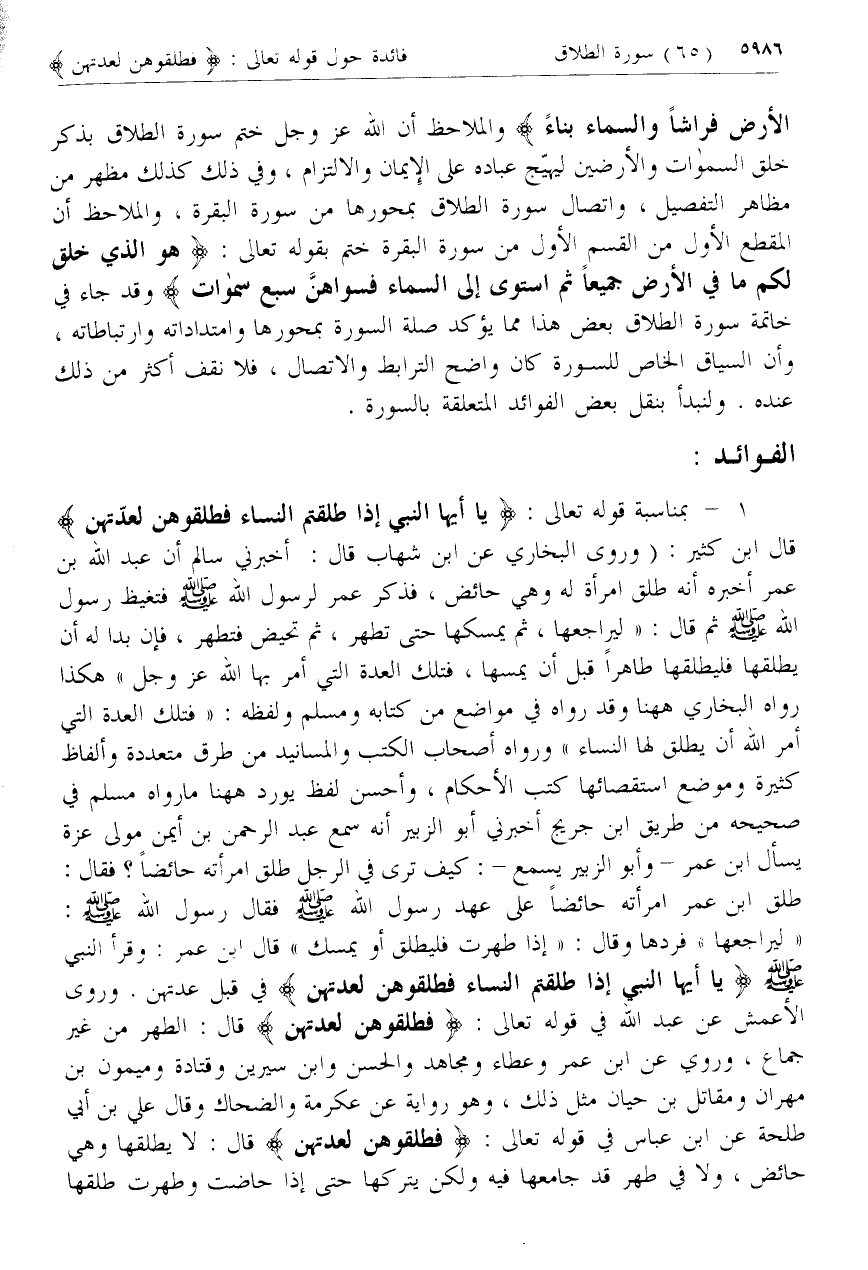 ٥٩٨٦ (٦٥) سورة الطلاق فائدة حول قوله تعالى : ﴿ فطلقوهن لعدتهن ﴾
الأرض فراشاً والسماء بناءً ﴾ والملاحظ أن الله عز وجل ختم سورة الطلاق بذكر
خلق السمٰوات والأرضين ليهيّج عباده على الإيمان والالتزام ، وفي ذلك كذلك مظهر من
مظاهر التفصيل ، واتصال سورة الطلاق بمحورها من سورة البقرة ، والملاحظ أن
المقطع الأول من القسم الأول من سورة البقرة ختم بقوله تعالى : ﴿ هو الذي خلق
لكم ما في الأرض جميعاً ثم استوى إلى السماء فسواهنَّ سبع سمٰوات ﴾ وقد جاء في
خاتمة سورة الطلاق بعض هذا مما يؤكد صلة السورة بمحورها وامتداداته وارتباطاته ،
وأن السياق الخاص للسورة كان واضح الترابط والاتصال ، فلا نقف أكثر من ذلك
عنده . ولنبدأ بنقل بعض الفوائد المتعلقة بالسورة .
الفوائد :
١ - بمناسبة قوله تعالى : ﴿ يا أيها النبي إذا طلقتم النساء فطلقوهن لعدّتهن ﴾
قال ابن كثير : ( وروى البخاري عن ابن شهاب قال : أخبرني سالم أن عبد الله بن
عمر أخبره أنه طلق امرأة له وهي حائض ، فذكر عمر لرسول الله ﷺ فتغيظ رسول
الله ﷺ ثم قال : « ليراجعها ، ثم يمسكها حتى تطهر ، ثم تحيض فتطهر ، فإن بدا له أن
يطلقها فليطلقها طاهراً قبل أن يمسها ، فتلك العدة التي أمر بها الله عز وجل » هكذا
رواه البخاري ههنا وقد رواه في مواضع من كتابه ومسلم ولفظه : « فتلك العدة التي
أمر الله أن يطلق لها النساء » ورواه أصحاب الكتب والمسانيد من طرق متعددة وألفاظ
كثيرة وموضع استقصائها كتب الأحكام ، وأحسن لفظ يورد ههنا مارواه مسلم في
صحيحه من طريق ابن جريج أخبرني أبو الزبير أنه سمع عبد الرحمن بن أيمن مولى عزة
يسأل ابن عمر – وأبو الزبير يسمع – : كيف ترى في الرجل طلق امرأته حائضاً ؟ فقال :
طلق ابن عمر امرأته حائضاً على عهد رسول الله ﷺ فقال رسول الله ﷺ :
« ليراجعها » فردها وقال : « إذا طهرت فليطلق أو يمسك » قال ابن عمر : وقرأ النبي
ﷺ ﴿ يا أيها النبي إذا طلقتم النساء فطلقوهن لعدتهن ﴾ في قبل عدتهن . وروى
الأعمش عن عبد الله في قوله تعالى : ﴿ فطلقوهن لعدتهن ﴾ قال : الطهر من غير
جماع ، وروي عن ابن عمر وعطاء ومجاهد والحسن وابن سيرين وقتادة وميمون بن
مهران ومقاتل بن حيان مثل ذلك ، وهو رواية عن عكرمة والضحاك وقال علي بن أبي
طلحة عن ابن عباس في قوله تعالى : ﴿ فطلقوهن لعدتهن ﴾ قال : لا يطلقها وهي
حائض ، ولا في طهر قد جامعها فيه ولكن يتركها حتى إذا حاضت وطهرت طلقها